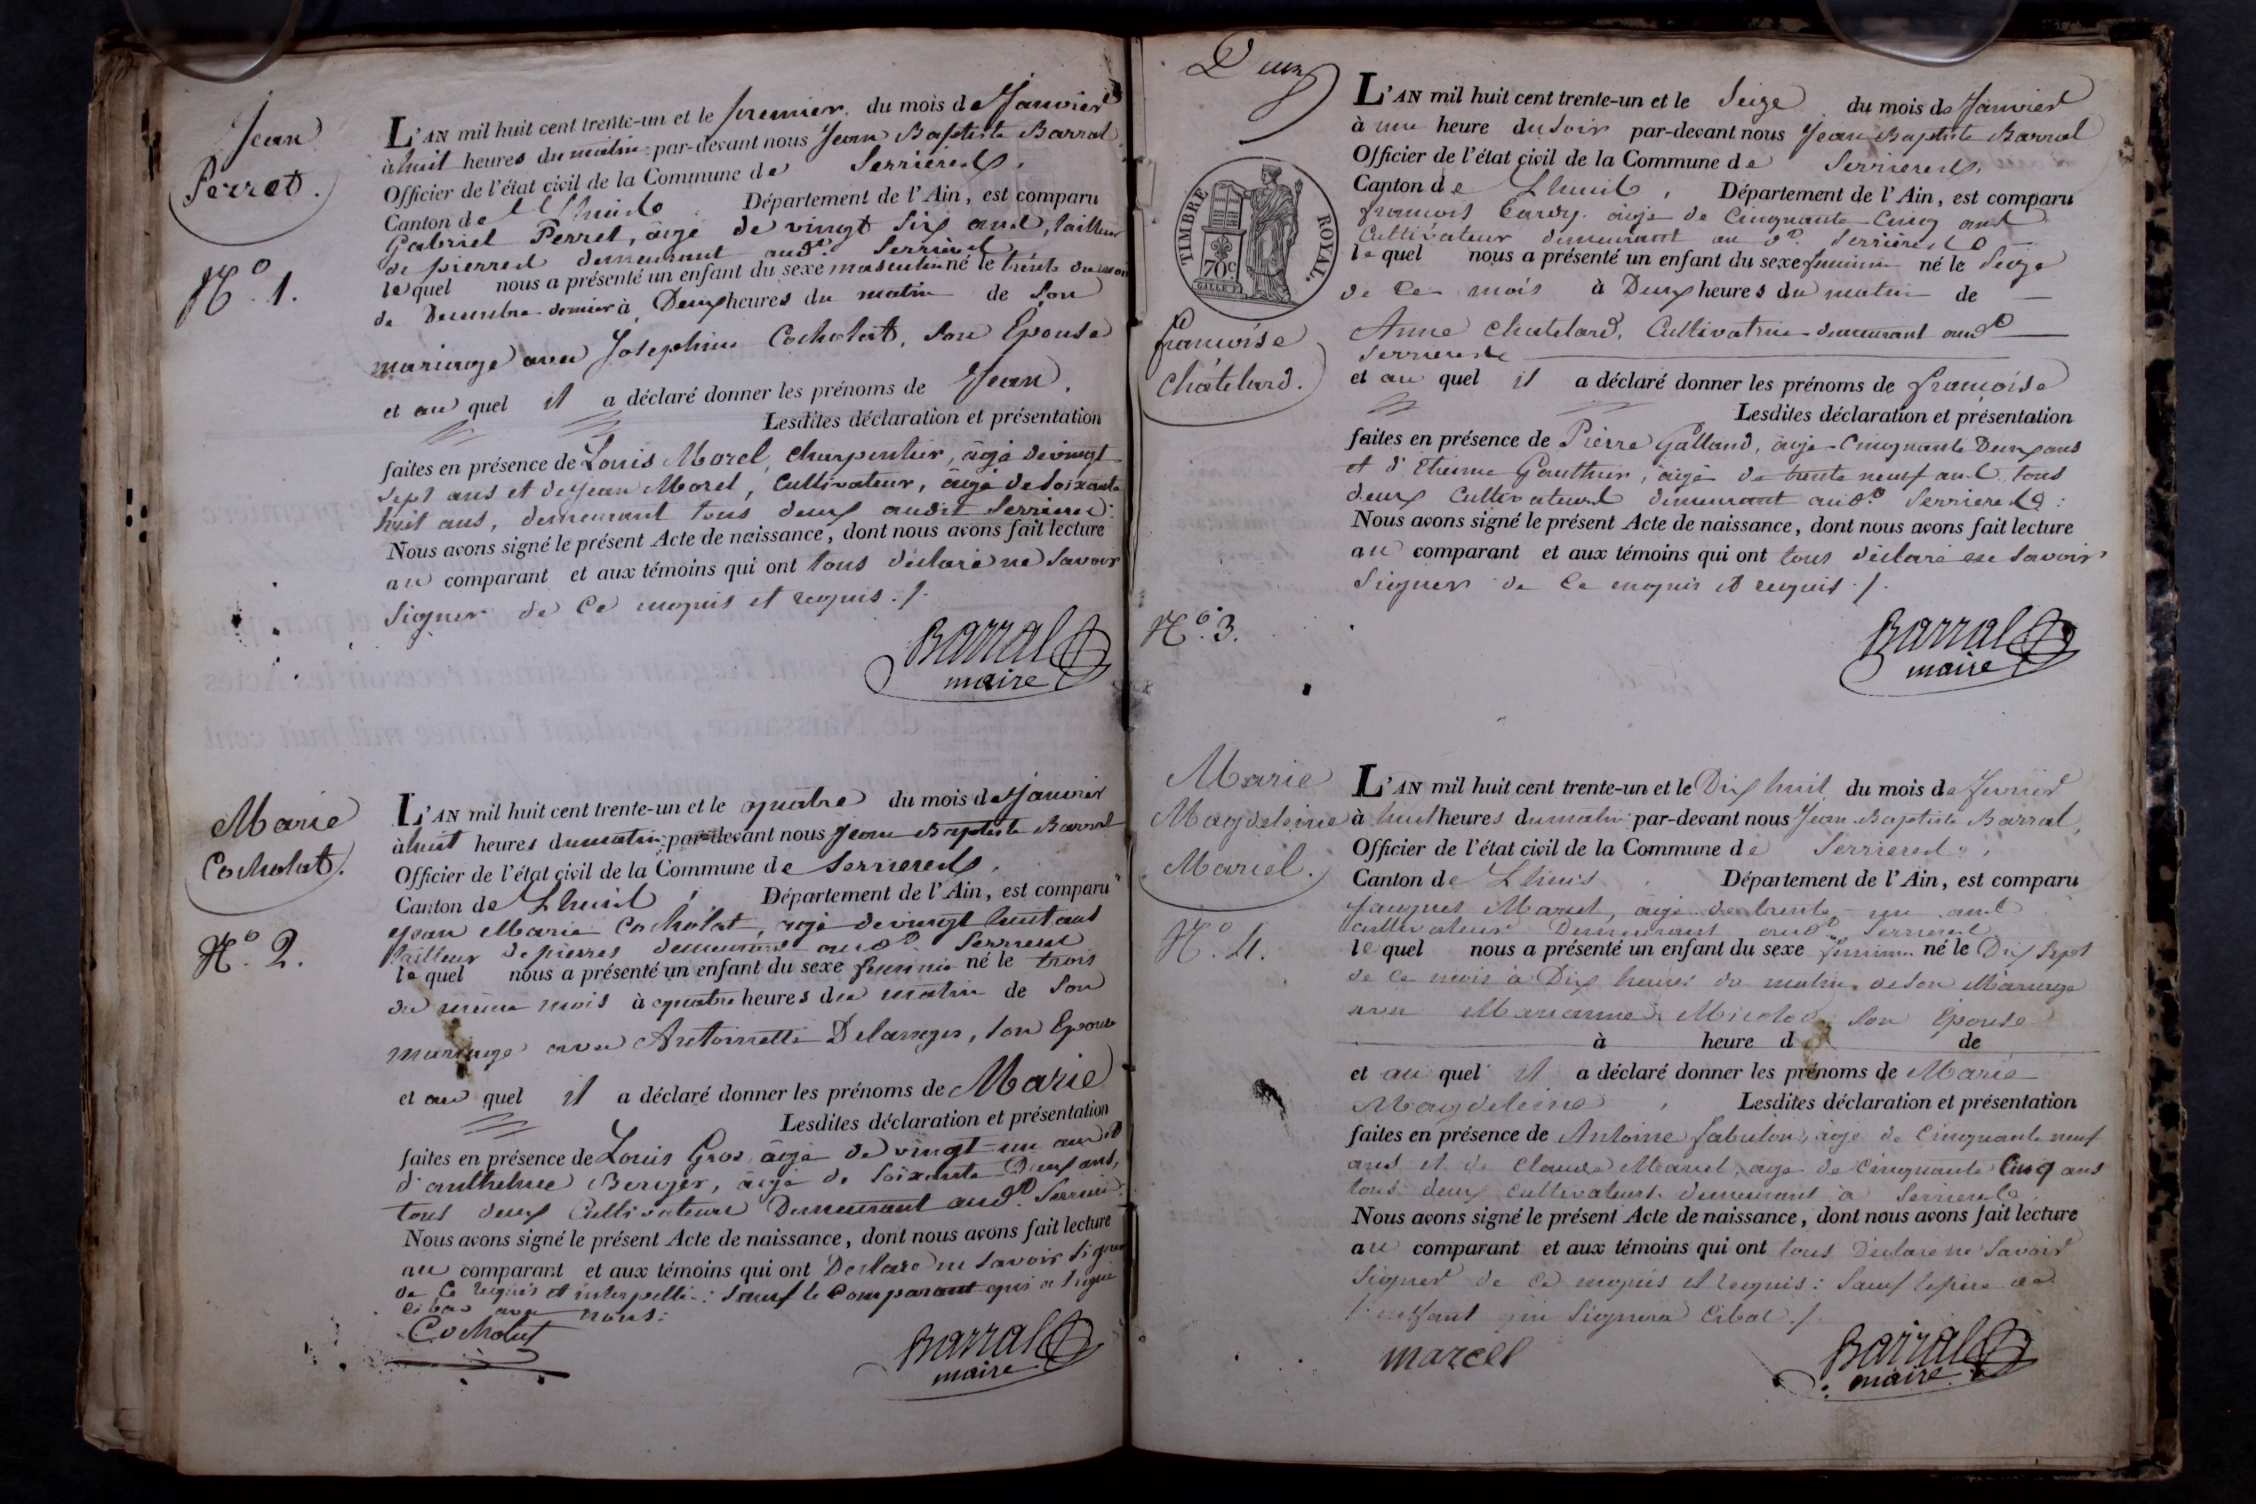 Jean
Perret.
N.° 1.
L'AN mil huit cent trente-un et le premier du mois de Janvier
à huit heures du matin par-devant nous Jean Baptiste Barral
Officier de l'état civil de la Commune de Serrieres.
Canton de Lhuis Département de l'Ain, est comparu
Gabriel Perret, âgé de vingt six ans, tailleur
de pierres demeurant aud. Serrieres
le quel nous a présenté un enfant du sexe masculin né le trente du mois
de Decembre dernier à Deux heures du matin de Son
mariage avec Josephine Cocholat, Son Epouse
et au quel il a déclaré donner les prénoms de Jean.
Lesdites déclaration et présentation
faites en présence de Louis Morel, charpentier, âgé de vingt
Sept ans et de Jean Morel, Cultivateur, âgé de Soixante
huit ans, demeurant tous deux audit Serrieres:
Nous avons signé le présent Acte de naissance, dont nous avons fait lecture
au comparant et aux témoins qui ont tous déclaré ne Savoir
Signer de ce enquis et requis ./.
Barral
maire
Marie
Cocholat.
N.° 2.
L'AN mil huit cent trente-un et le quatre du mois de Janvier
à huit heures du matin par-devant nous Jean Baptiste Barral
Officier de l'état civil de la Commune de Serrieres.
Canton de Lhuis, Département de l'Ain, est comparu
Jean Marie Cocholat, âgé de vingt huit ans
tailleur de pierres demeurant aud. Serrieres
le quel nous a présenté un enfant du sexe feminin né le trois
du même mois à quatre heures du matin de Son
mariage avec Antoinette Delanges, son Epouse
et au quel il a déclaré donner les prénoms de Marie
Lesdites déclaration et présentation
faites en présence de Louis Gros âgé de vingt-un ans et
d'anthelme Berger, âgé de Soixante Deux ans,
tous deux Cultivateurs Demeurant aud. Serrieres.
Nous avons signé le présent Acte de naissance, dont nous avons fait lecture
au comparant et aux témoins qui ont Declaré ne Savoir Signer
de ce requis et interpellé: Sauf le Comparant qui a Signé
cibas avec nous:
Cocholat
Barral
maire
Deux
TIMBRE ROYAL.
70c
Françoise
Châtelard.
N.° 3.
L'AN mil huit cent trente-un et le Seize du mois de Janvier
à une heure du Soir par-devant nous Jean Baptiste Barral
Officier de l'état civil de la Commune de Serrieres.
Canton de Lhuis, Département de l'Ain, est comparu
françois Cardy âgé de Cinquante Cinq ans
Cultivateur demeurant au d. Serrieres
le quel nous a présenté un enfant du sexe feminin né le Seize
de Ce mois à Deux heures du matin de
Anne Chatelard, Cultivatrice demeurant aud.
Serrieres
et au quel il a déclaré donner les prénoms de françoise
Lesdites déclaration et présentation
faites en présence de Pierre Galland, âgé Cinquante Deux ans
et d'Etienne Gauthier, âgé de trente neuf ans, tous
deux Cultivateurs demeurant aud. Serrieres:
Nous avons signé le présent Acte de naissance, dont nous avons fait lecture
au comparant et aux témoins qui ont tous déclaré ne Savoir
Signer de Ce enquis et requis ./.
Barral
maire
Marie
Magdeleine
Marcel.
N.° 4.
L'AN mil huit cent trente-un et le Dix huit du mois de fevrier
à huit heures du matin par-devant nous Jean Baptiste Barral,
Officier de l'état civil de la Commune de Serrieres,
Canton de Lhuis Département de l'Ain, est comparu
Jacques Marcel, âgé de trente un ans
cultivateur Demeurant aud. Serrieres
le quel nous a présenté un enfant du sexe feminin né le Dix Sept
de Ce mois à Dix heures du matin de Son Mariage
avec Marianne Micolod Son Epouse
à heure d de
et au quel il a déclaré donner les prénoms de Marie
Magdeleine, Lesdites déclaration et présentation
faites en présence de Antoine fabulon, âgé de Cinquante neuf
ans et de Claude Marcel, âgé de Cinquante Cinq ans
tous deux cultivateurs demeurant à Serrieres
Nous avons signé le présent Acte de naissance, dont nous avons fait lecture
au comparant et aux témoins qui ont tous Declaré ne Savoir
Signer de Ce enquis et requis: Sauf le pere de
l'enfant qui Signera cibas ./.
marcel
Barral
maire